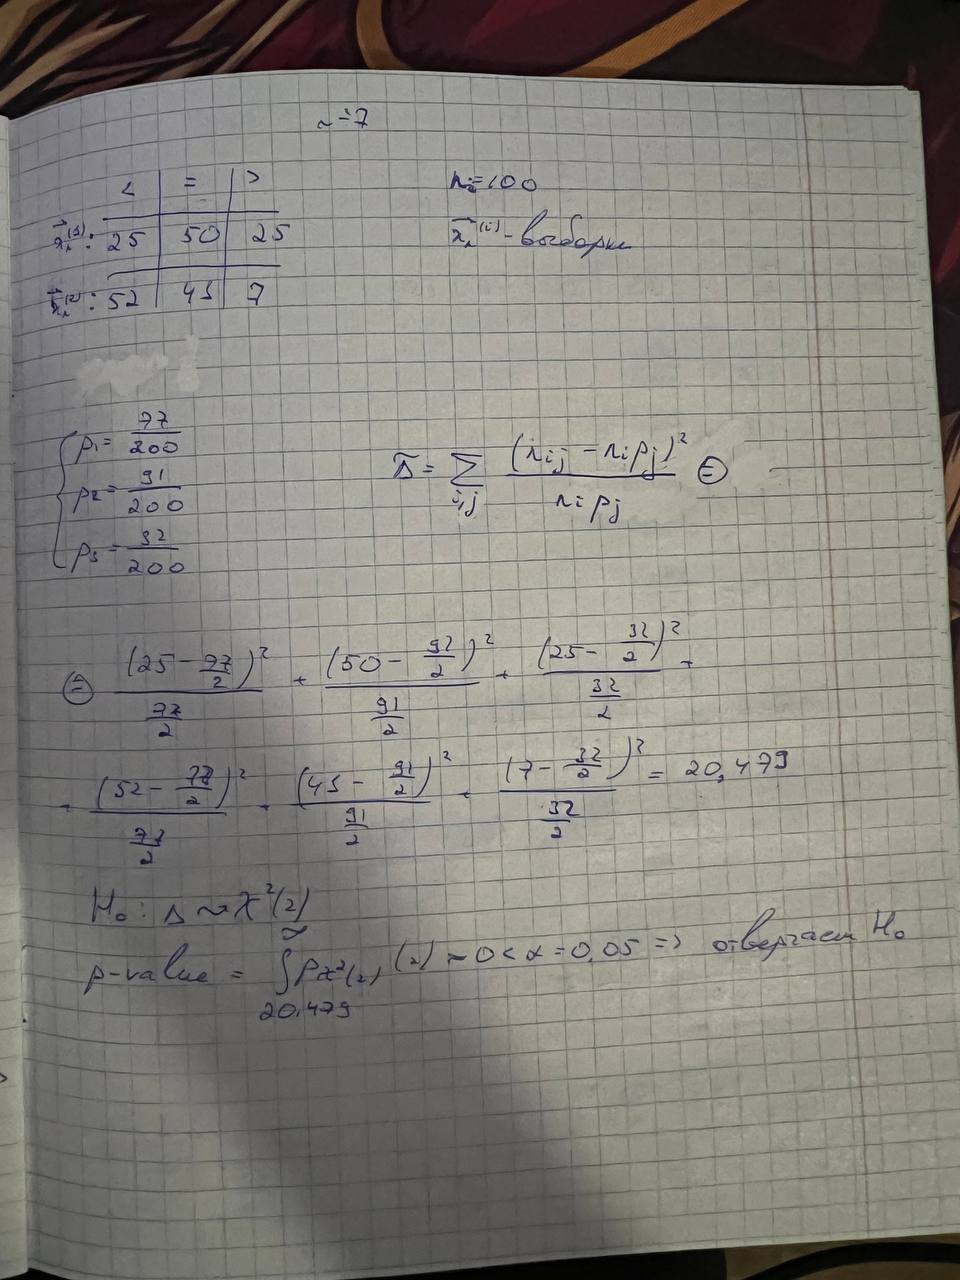 ~=7
< | = | >
n_i=100
x⃗_n^(1): 25 | 50 | 25
x⃗_n^(i) - выборки
x⃗_n^(2): 52 | 41 | 7
p₁ = 77/200
p₂ = 91/200
p₃ = 32/200
Δ̃ = Σ_{i,j} (n_ij - n_i p_j)² / (n_i p_j) ⊜
⊜ (25 - 77/2)² / (77/2) + (50 - 91/2)² / (91/2) + (25 - 32/2)² / (32/2) +
+ (52 - 77/2)² / (77/2) + (41 - 91/2)² / (91/2) + (7 - 32/2)² / (32/2) = 20,479
H₀: Δ ~ χ²(2)
p-value = ∫_{20,479}^{∞} p_{χ²(2)} (x) ~ 0 < α = 0,05 => отвергаем H₀